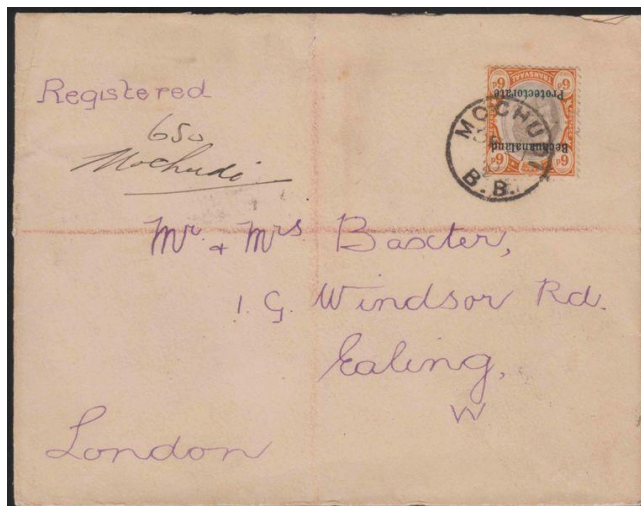 Registered
650
Mochudi
TRANSVAAL
6d
6d
Protectorate
Bechuanaland
6d
6d
MOCHUDI
B.B.
Mr. & Mrs Baxter,
1. G. Windsor Rd.
Ealing,
W
London